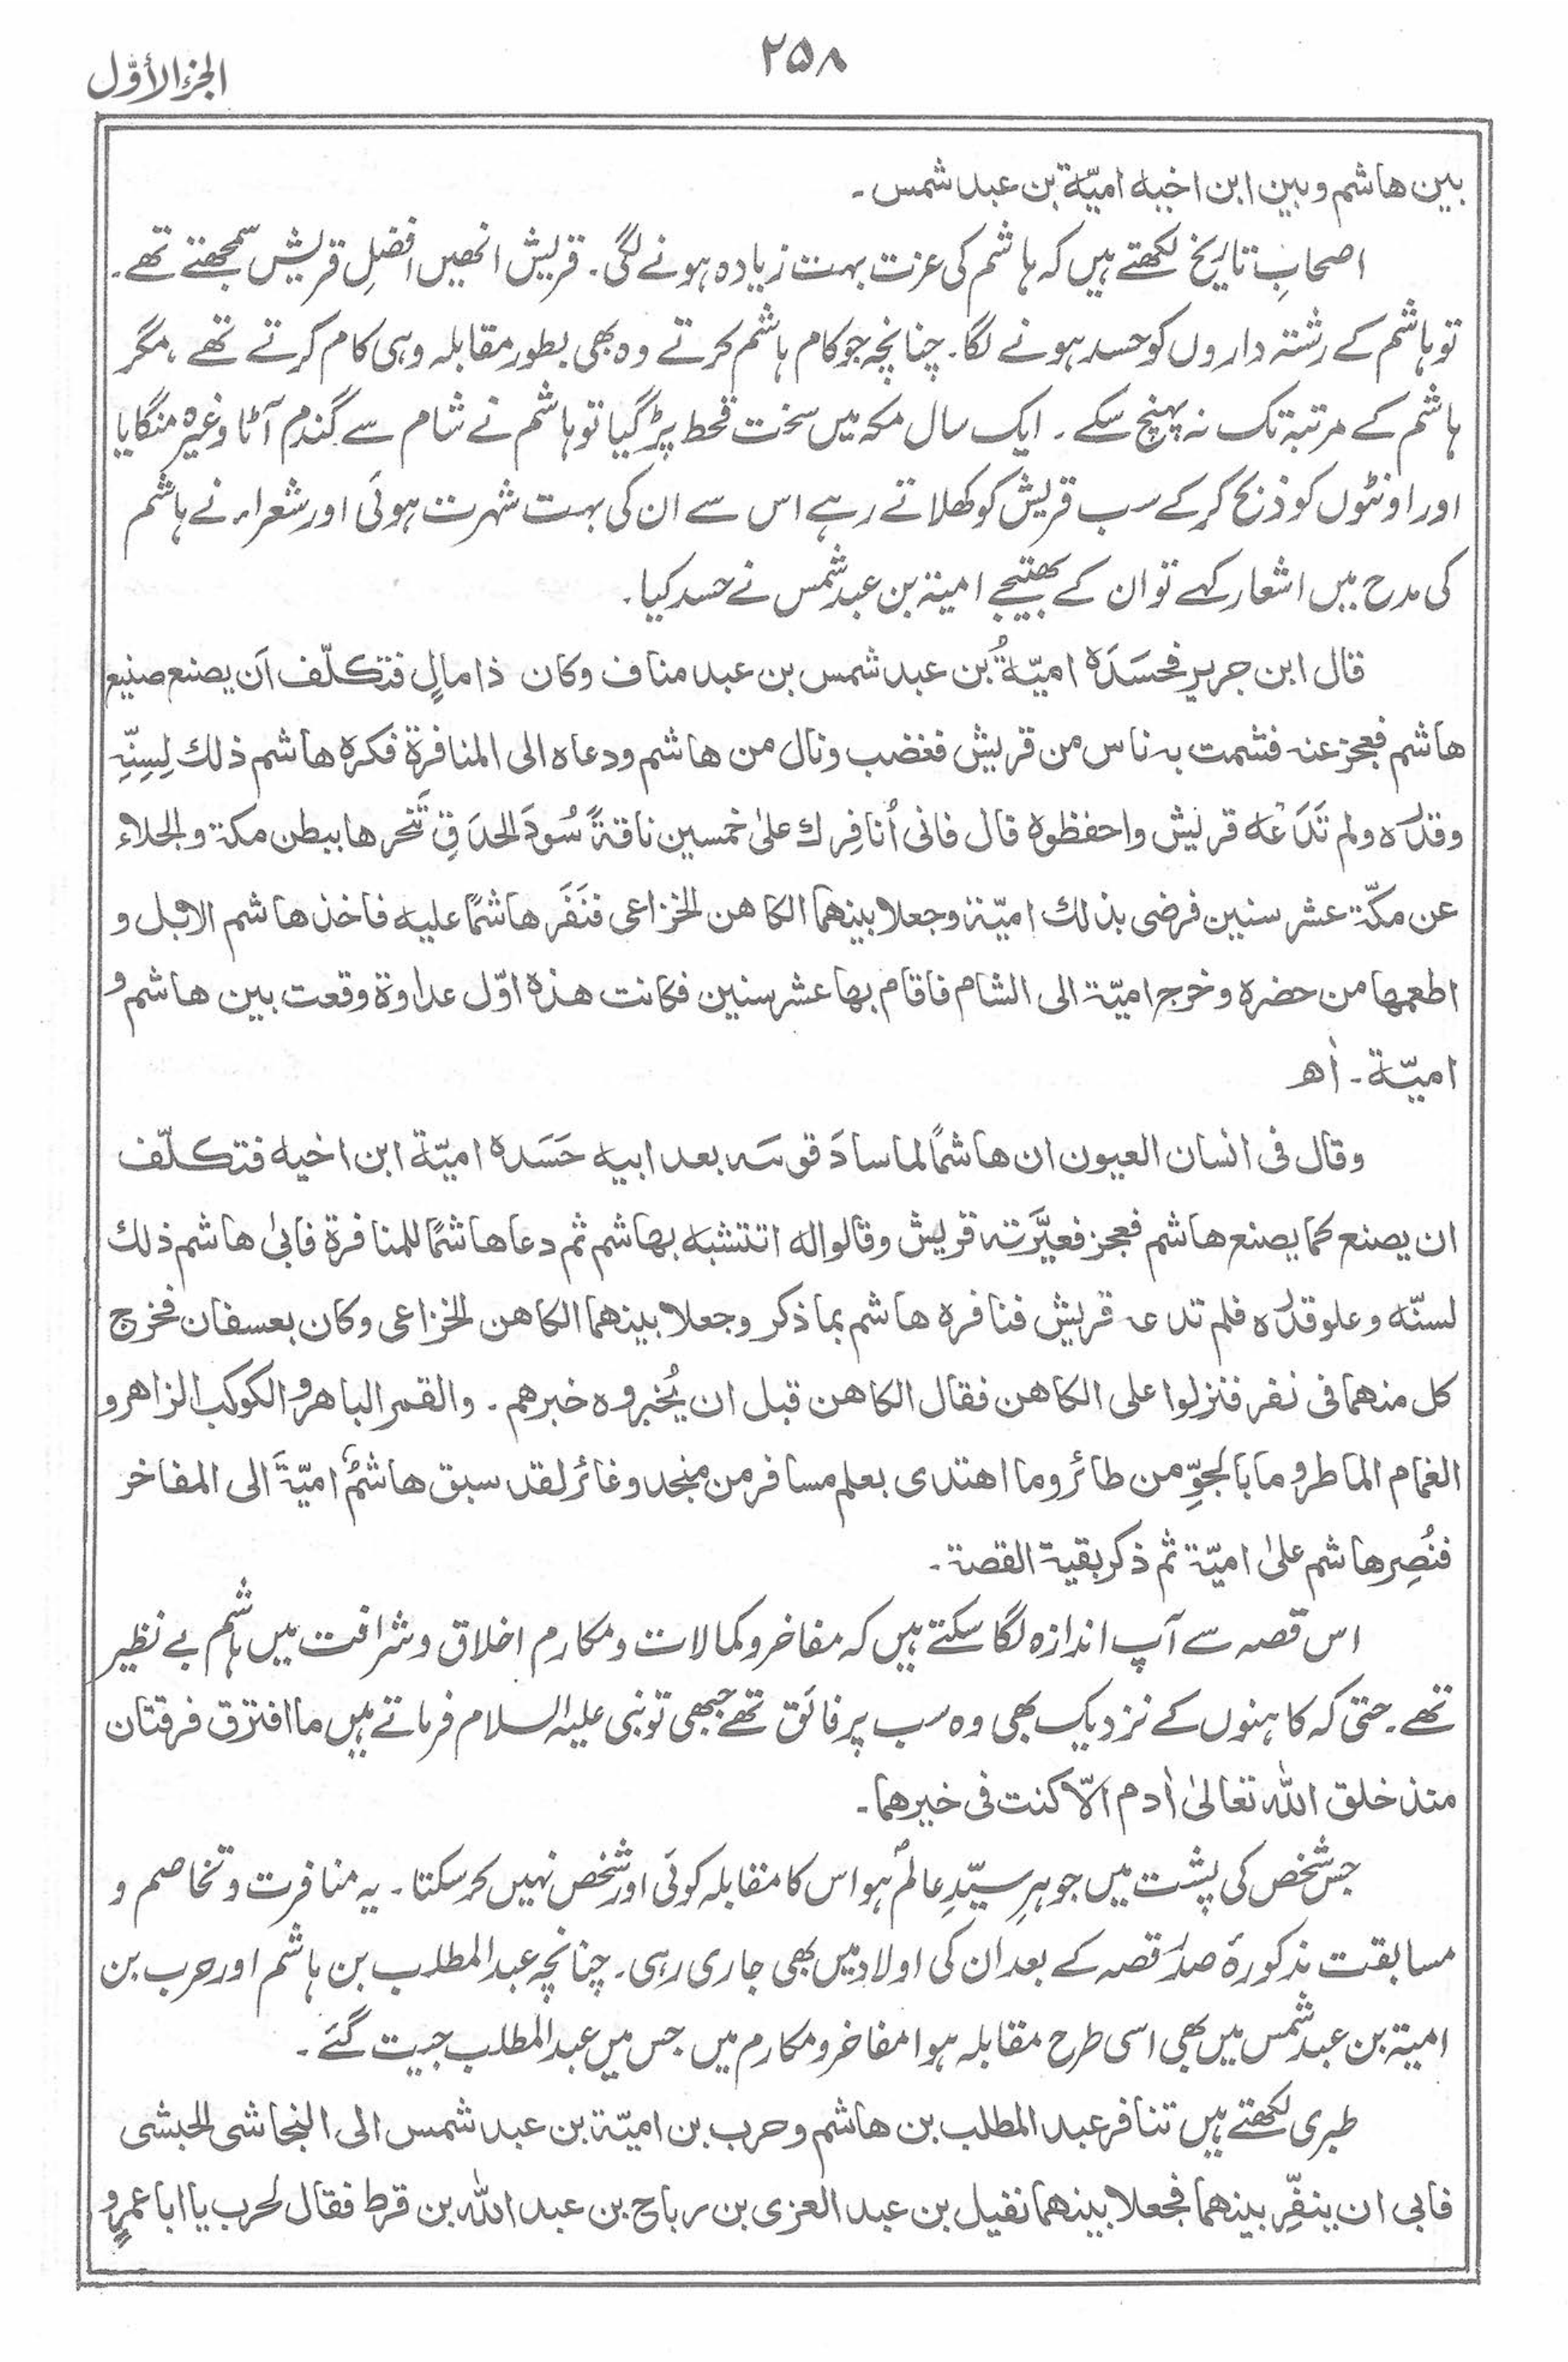 ٢٥٨
الجزء الأوّل
بین ھاشم وبین ابن اخیه امیّة بن عبد شمس۔
اصحابِ تاریخ لکھتے ہیں کہ ہاشم کی عزت بہت زیادہ ہونے لگی۔ قریش انھیں افضلِ قریش سمجھتے تھے۔
تو ہاشم کے رشتہ داروں کو حسد ہونے لگا۔ چنانچہ جو کام ہاشم کرتے وہ بھی بطور مقابلہ وہی کام کرتے تھے، مگر
ہاشم کے مرتبہ تک نہ پہنچ سکے۔ ایک سال مکہ میں سخت قحط پڑ گیا تو ہاشم نے شام سے گندم آٹا وغیرہ منگایا
اور اونٹوں کو ذبح کر کے سب قریش کو کھلاتے رہے اس سے ان کی بہت شہرت ہوئی اور شعراء نے ہاشم
کی مدح میں اشعار کہے تو ان کے بھتیجے امیۃ بن عبد شمس نے حسد کیا۔
قال ابن جریر فحسَدَہ امیّةُ بن عبد شمس بن عبد مناف وکان ذا مالٍ فتکلّف اَن یصنع صنیع
ھاشم فعجز عنه فشمت به ناس من قریش فغضب ونال من ھاشم ودعاہ الی المنافرة فکرہ ھاشم ذلك لِسِنِّہٖ
وقدرہ ولم تَدَعْه قریش واحفظوہ قال فانی اُنافِرك علیٰ خمسین ناقةً سُودَ الحدَقِ تَنحرھا ببطن مکة والجلاء
عن مکّة عشر سنین فرضی بذلك امیّة وجعلا بینھما الکاھن الخزاعی فنَفَر ھاشمًا علیه فاخذ ھاشم الابل و
اطعمھا من حضرہ وخرج امیّة الی الشام فاقام بھا عشر سنین فکانت ھذہ اوّل عداوة وقعت بین ھاشم و
امیّة۔ اٰھ
وقال فی انسان العیون ان ھاشمًا لما سادَ قومَه بعد ابیه حَسَدہ امیّة ابن اخیه فتکلّف
ان یصنع کما یصنع ھاشم فعجز فعیَّرَته قریش وقالوا له اتتشبه بھاشم ثم دعا ھاشمًا للمنافرة فابیٰ ھاشم ذلك
لسنّه وعلو قدرہ فلم تدعه قریش فنافرہ ھاشم بما ذکر وجعلا بینھما الکاھن الخزاعی وکان بعسفان فخرج
کل منھما فی نفر فنزلوا علی الکاھن فقال الکاھن قبل ان یُخبروہ خبرھم۔ والقمر الباھر والکوکب الزاھر و
الغمام الماطر وما بالجوِّ من طائر وما اھتدی بعلم مسافر من منجد وغائر لقد سبق ھاشمٌ امیّةَ الی المفاخر
فنُصِر ھاشم علیٰ امیّة ثم ذکر بقیة القصة۔
اس قصہ سے آپ اندازہ لگا سکتے ہیں کہ مفاخر و کمالات و مکارم اخلاق و شرافت میں ہاشم بے نظیر
تھے۔ حتیٰ کہ کاہنوں کے نزدیک بھی وہ سب پر فائق تھے جبھی تو نبی علیہ السلام فرماتے ہیں ما افترق فرقتان
منذ خلق اللہ تعالیٰ اٰدم الّا کنت فی خیرھما۔
جس شخص کی پشت میں جوہرِ سیّدِ عالمؐ ہو اس کا مقابلہ کوئی اور شخص نہیں کر سکتا۔ یہ منافرت و تخاصم و
مسابقت مذکورہٴ صدر قصہ کے بعد ان کی اولاد میں بھی جاری رہی۔ چنانچہ عبد المطلب بن ہاشم اور حرب بن
امیۃ بن عبد شمس میں بھی اسی طرح مقابلہ ہوا مفاخر و مکارم میں جس میں عبد المطلب جیت گئے۔
طبری لکھتے ہیں تنافر عبد المطلب بن ھاشم وحرب بن امیّة بن عبد شمس الی النجاشی الحبشی
فابی ان ینفِّر بینھما فجعلا بینھما نفیل بن عبد العزی بن رباح بن عبد اللہ بن قرط فقال لحرب یا ابا عمرٍو